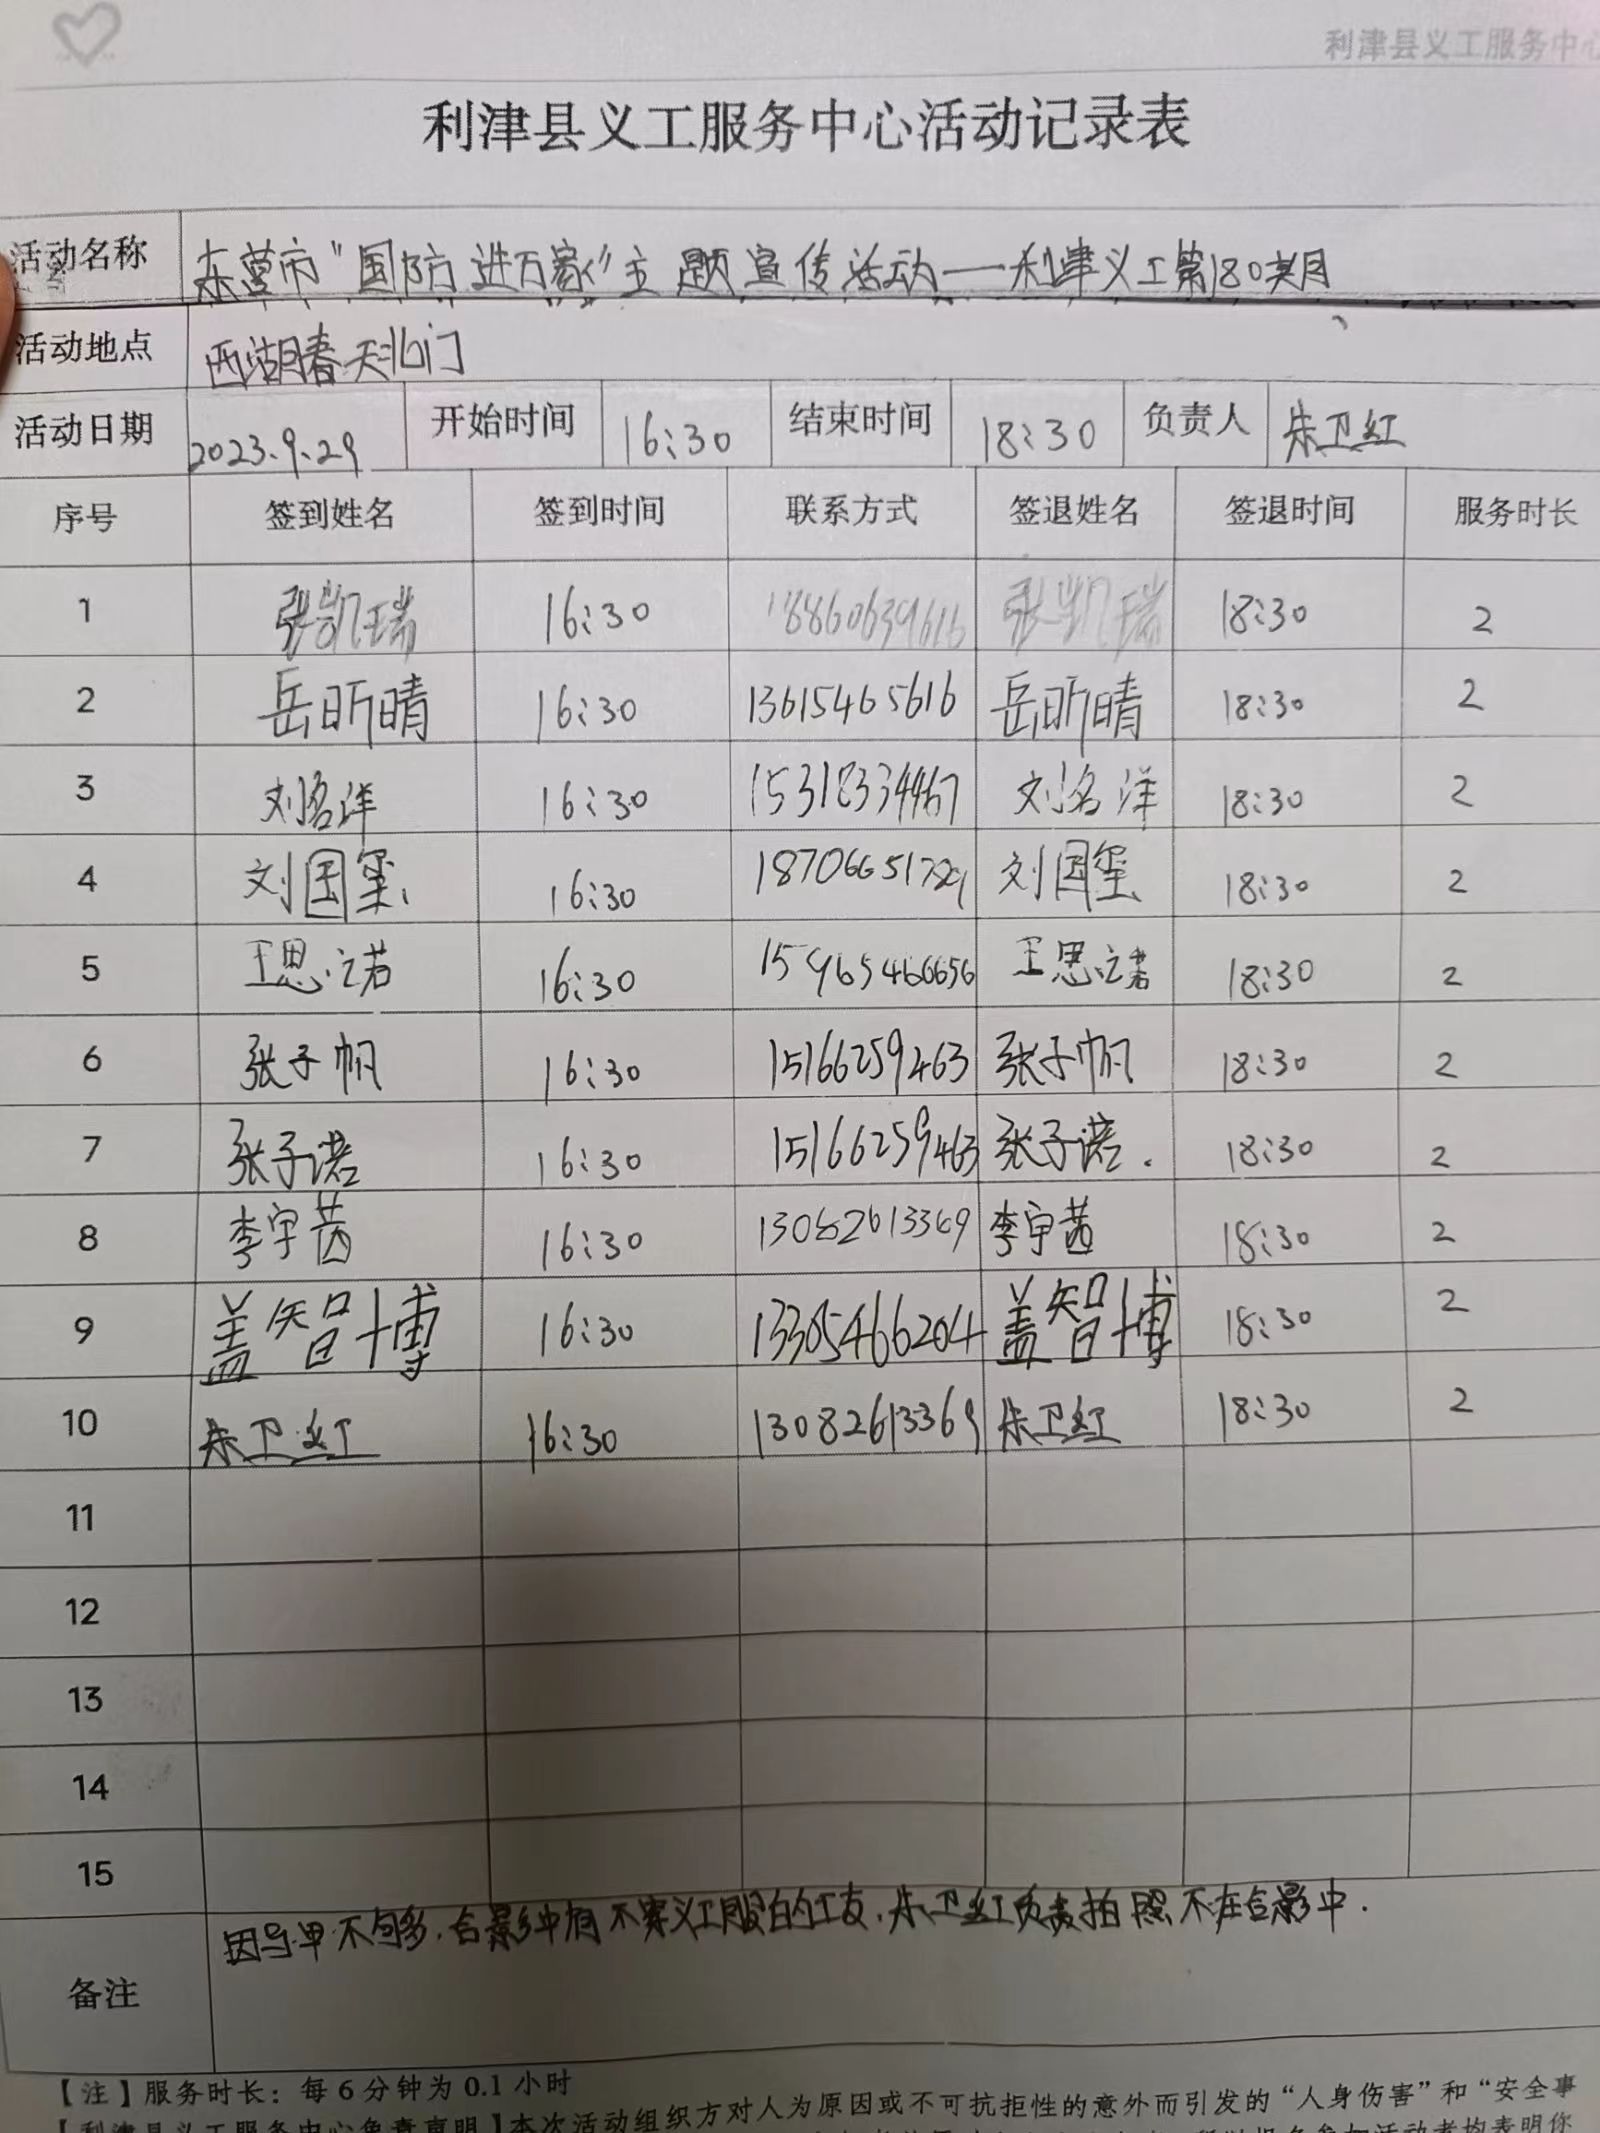 利津县义工服务中心
利津县义工服务中心活动记录表
活动名称 东营市“国防进万家”主题宣传活动——利津义工第180期
活动地点 西湖春天北门
活动日期 2023.9.29 开始时间 16:30 结束时间 18:30 负责人 朱卫红
序号 签到姓名 签到时间 联系方式 签退姓名 签退时间 服务时长
1 张凯瑞 16:30 18860639616 张凯瑞 18:30 2
2 岳昕晴 16:30 13615465616 岳昕晴 18:30 2
3 刘名洋 16:30 15318334467 刘名洋 18:30 2
4 刘国玺 16:30 刘国玺 18:30 2
5 王思诺 16:30 王思诺 18:30 2
6 张子帆 16:30 15166259463 张子帆 18:30 2
7 张子诺 16:30 15166259463 张子诺. 18:30 2
8 李宇茜 16:30 李宇茜 18:30 2
9 盖智博 16:30 13305466204 盖智博 18:30 2
10 朱卫红 16:30 13082613369 朱卫红 18:30 2
11
12
13
14
15
备注 因马甲不够多,合影中有不穿义工服的工友,朱卫红负责拍照不在合影中.
【注】服务时长：每6分钟为0.1小时
【利津县义工服务中心免责声明】本次活动组织方对人为原因或不可抗拒性的意外而引发的“人身伤害”和“安全事